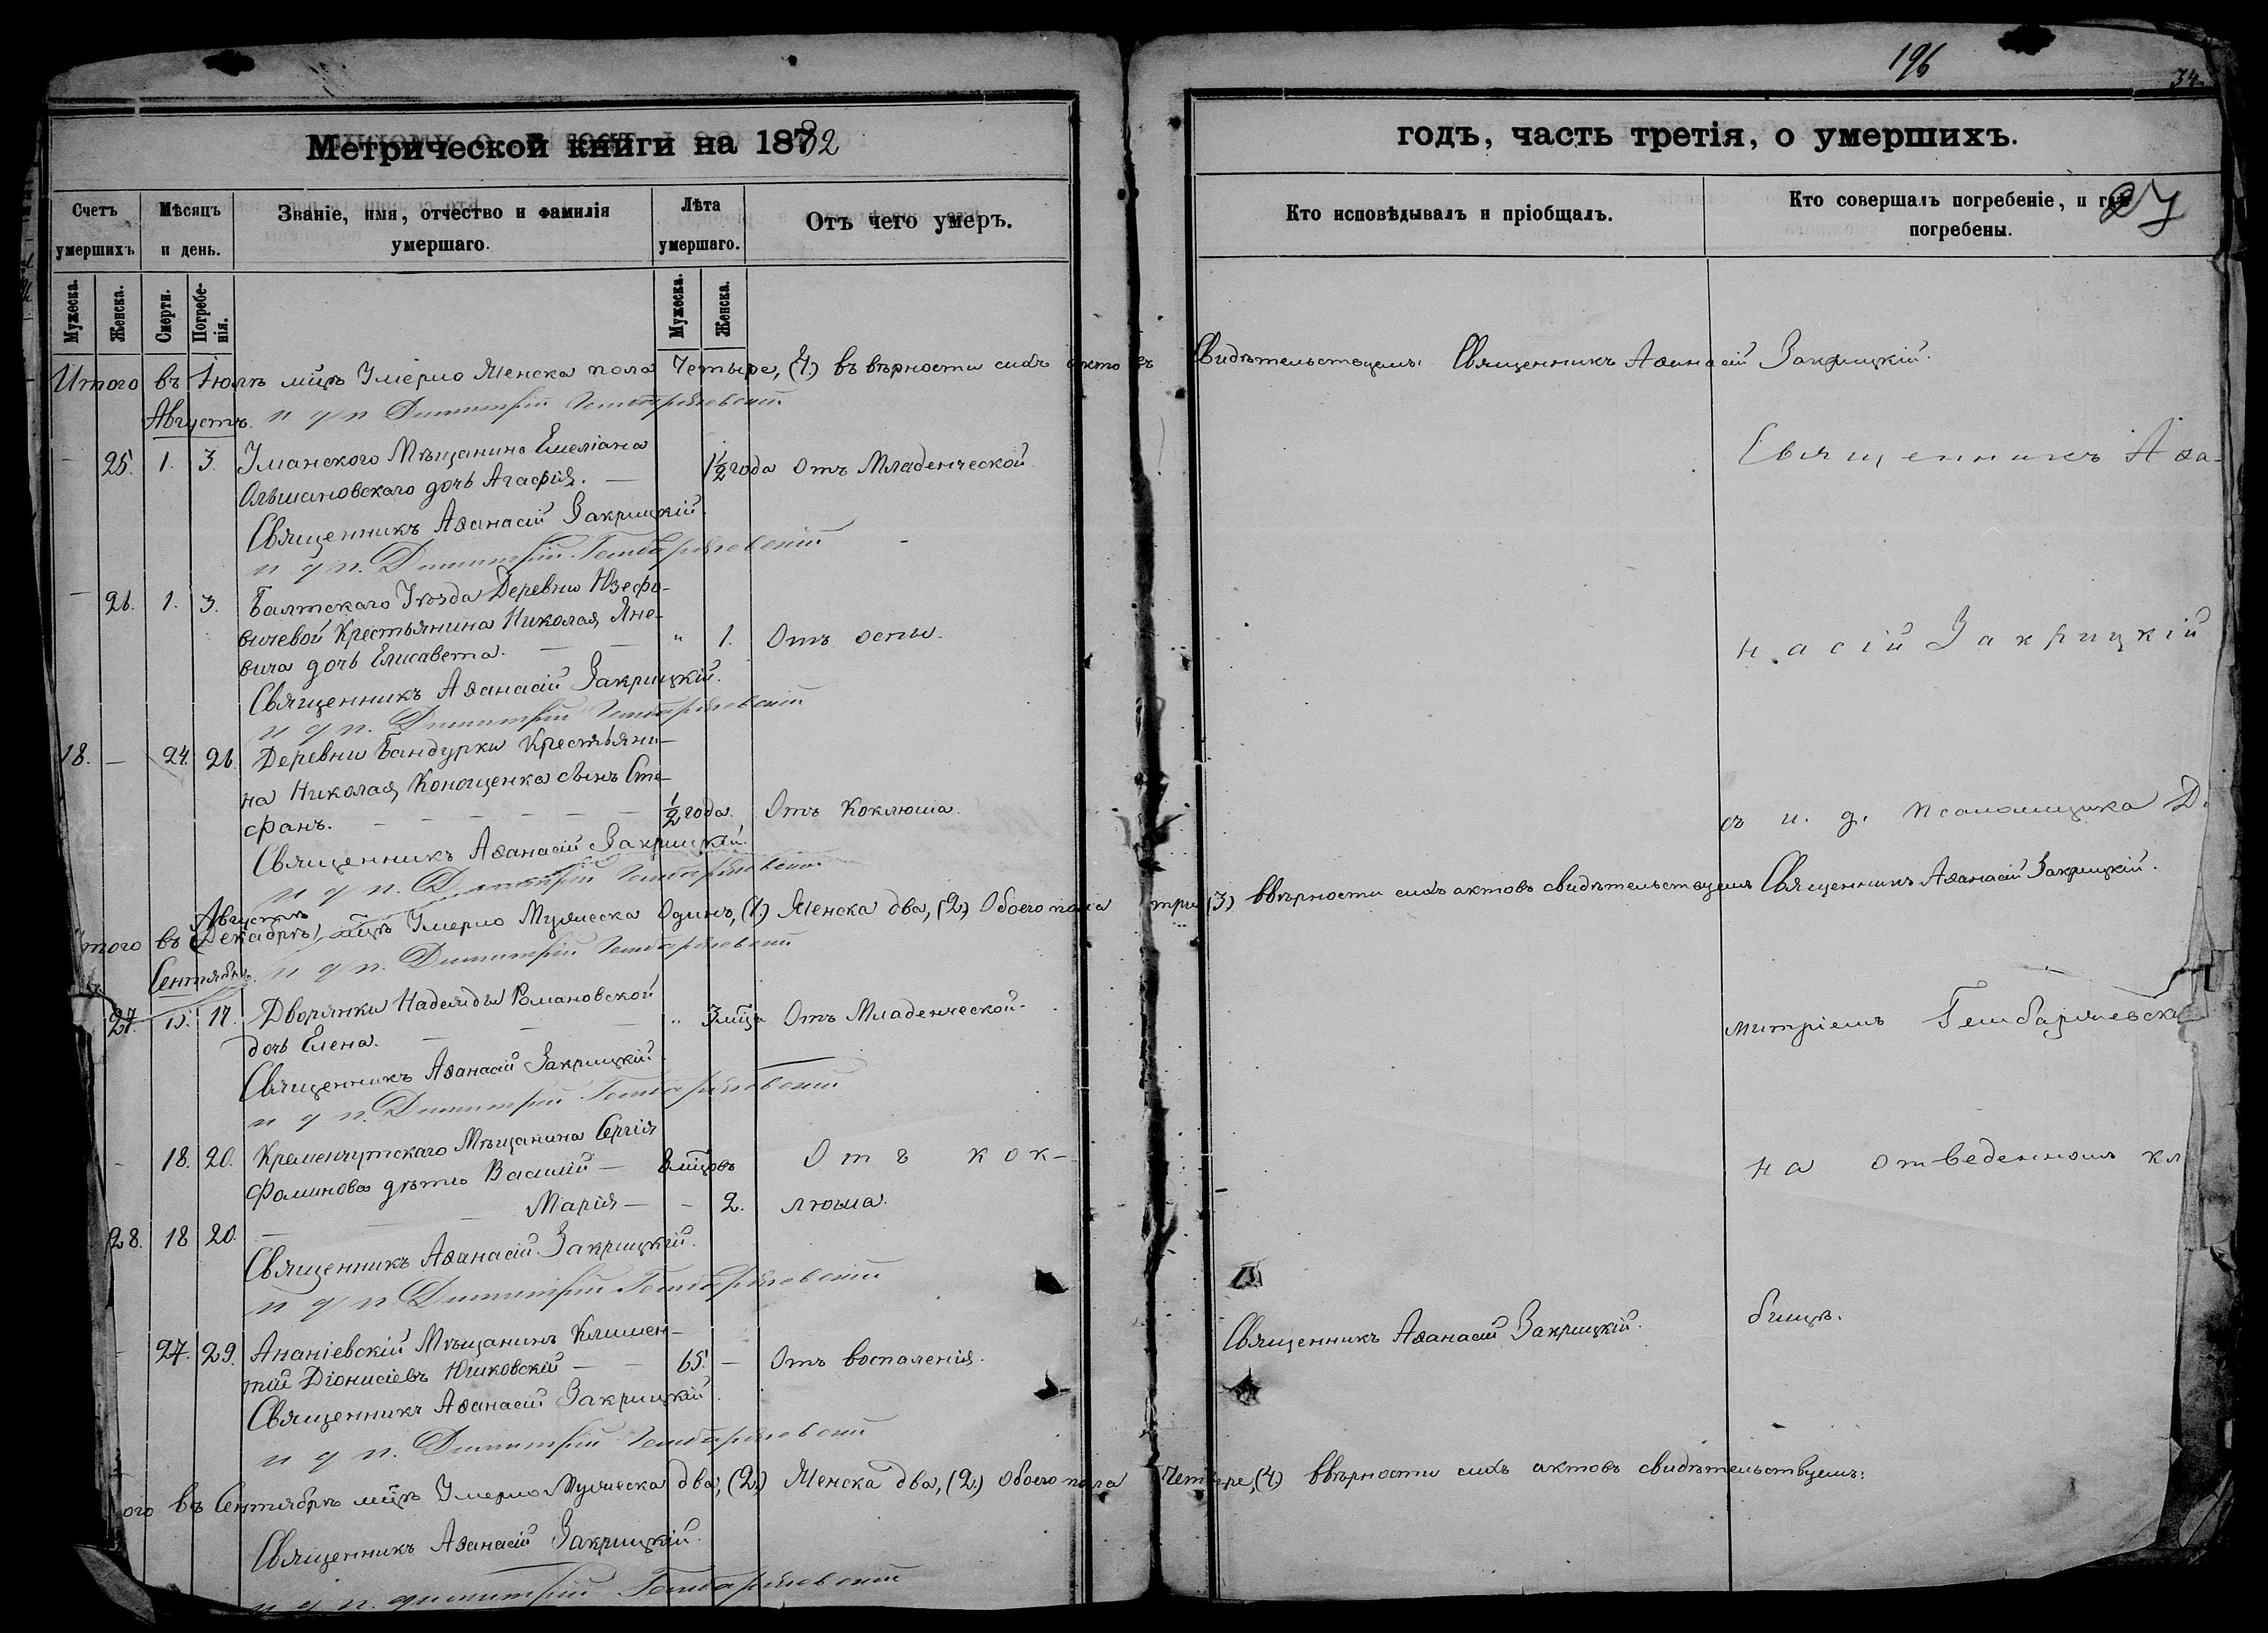 196
34.
Метрической книги на 1882
годъ, часть третія, о умершихъ.
27
Счетъ умершихъ
Мѣсяцъ и день.
Званіе, имя, отчество и фамилія умершаго.
Лѣта умершаго.
Отъ чего умеръ.
Кто исповѣдывалъ и пріобщалъ.
Кто совершалъ погребеніе, и гдѣ погребены.
Мужеска.
Женска.
Смерти.
Погребенія.
Мужеска.
Женска.
Итого въ Іюлѣ мцѣ Умерло Женска пола Четыре, (4.) въ вѣрности сихъ актовъ Свидѣтельствуемъ: Священникъ Аѳанасій Закрицкій.
и д п Димитрій
Августъ.
25. 1. 3. Уманского Мѣщанина Емеліана 1½ года Отъ Младенческой. Священникъ Аѳа-
Ольшановскаго дочь Агафія. —
Священникъ Аѳанасій Закрицкій.
и д п. Димитрій
— 26. 1. 3. Балтскаго Уѣзда Деревни Юзефо-
вичевой Крестьянина Николая Яне- " 1. Отъ оспы. насій Закрицкій
вича дочь Елисавета. — —
Священникъ Аѳанасій Закрицкій.
и д п. Димитрій
18. — 24. 26. Деревни Бандурки Крестьяни-
на Николая Конощенка сынъ Сте-
фанъ. — ½ года. Отъ Коклюша. съ и. д. псаломщика Д.
Священникъ Аѳанасій Закрицкій.
и д п. Димитрій
Августѣ
того въ (Декабрѣ) мцѣ Умерло Мужеска Одинъ, (1.) Женска два, (2.) Обоего пола три (3) ввѣрности сихъ актовъ свидѣтельствуемъ Священникъ Аѳанасій Закрицкій.
и д п. Димитрій
Сентябрь.
27. 15. 17. Дворянки Надежды Романовской " 3 мца Отъ Младенческой. митріемъ Гембаржевски
дочь Елена. —
Священникъ Аѳанасій Закрицкій.
и д п. Димитрій
- 18. 20. Кременчугскаго Мѣщанина Сергія
Фоминова дѣти Василій — 8 мцовъ Отъ кок- на отведенномъ кл
28. 18 20. — Марія — - 2. люша.
Священникъ Аѳанасій Закрицкій.
и д п Димитрій
- 27. 29. Ананіевскій Мѣщанинъ Климен-
тій Діонисіевъ Юшковскій — 65. — Отъ воспаленія. Священникъ Аѳанасій Закрицкій. бищѣ.
Священникъ Аѳанасій Закрицкій.
и д п. Димитрій
ого въ Сентябрѣ мцѣ Умерло Мужеска два, (2.) Женска два, (2.) Обоего пола Четыре, (4) ввѣрности сихъ актовъ свидѣтельствуемъ:
Священникъ Аѳанасій Закрицкій.
и д п. Димитрій